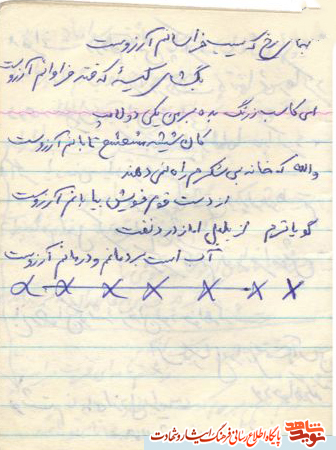 بنمای رخ که سیب خراسانم آرزوست
بگشای کیسهٔ که قند فراوانم آرزوست
ای کاسب زرنگ بده بر من یکی دو لامپ
کان شیشه مشعشع تابانم آرزوست
والله که خانه بی شکرم راه نمی دهند
از دست قوم خویش بیابانم آرزوست
گویاترم ز بلبل اما ز درد نفت
آب است و درمانم آرزوست
نوید شاهد
پایگاه اطلاع رسانی فرهنگ ایثار و شهادت